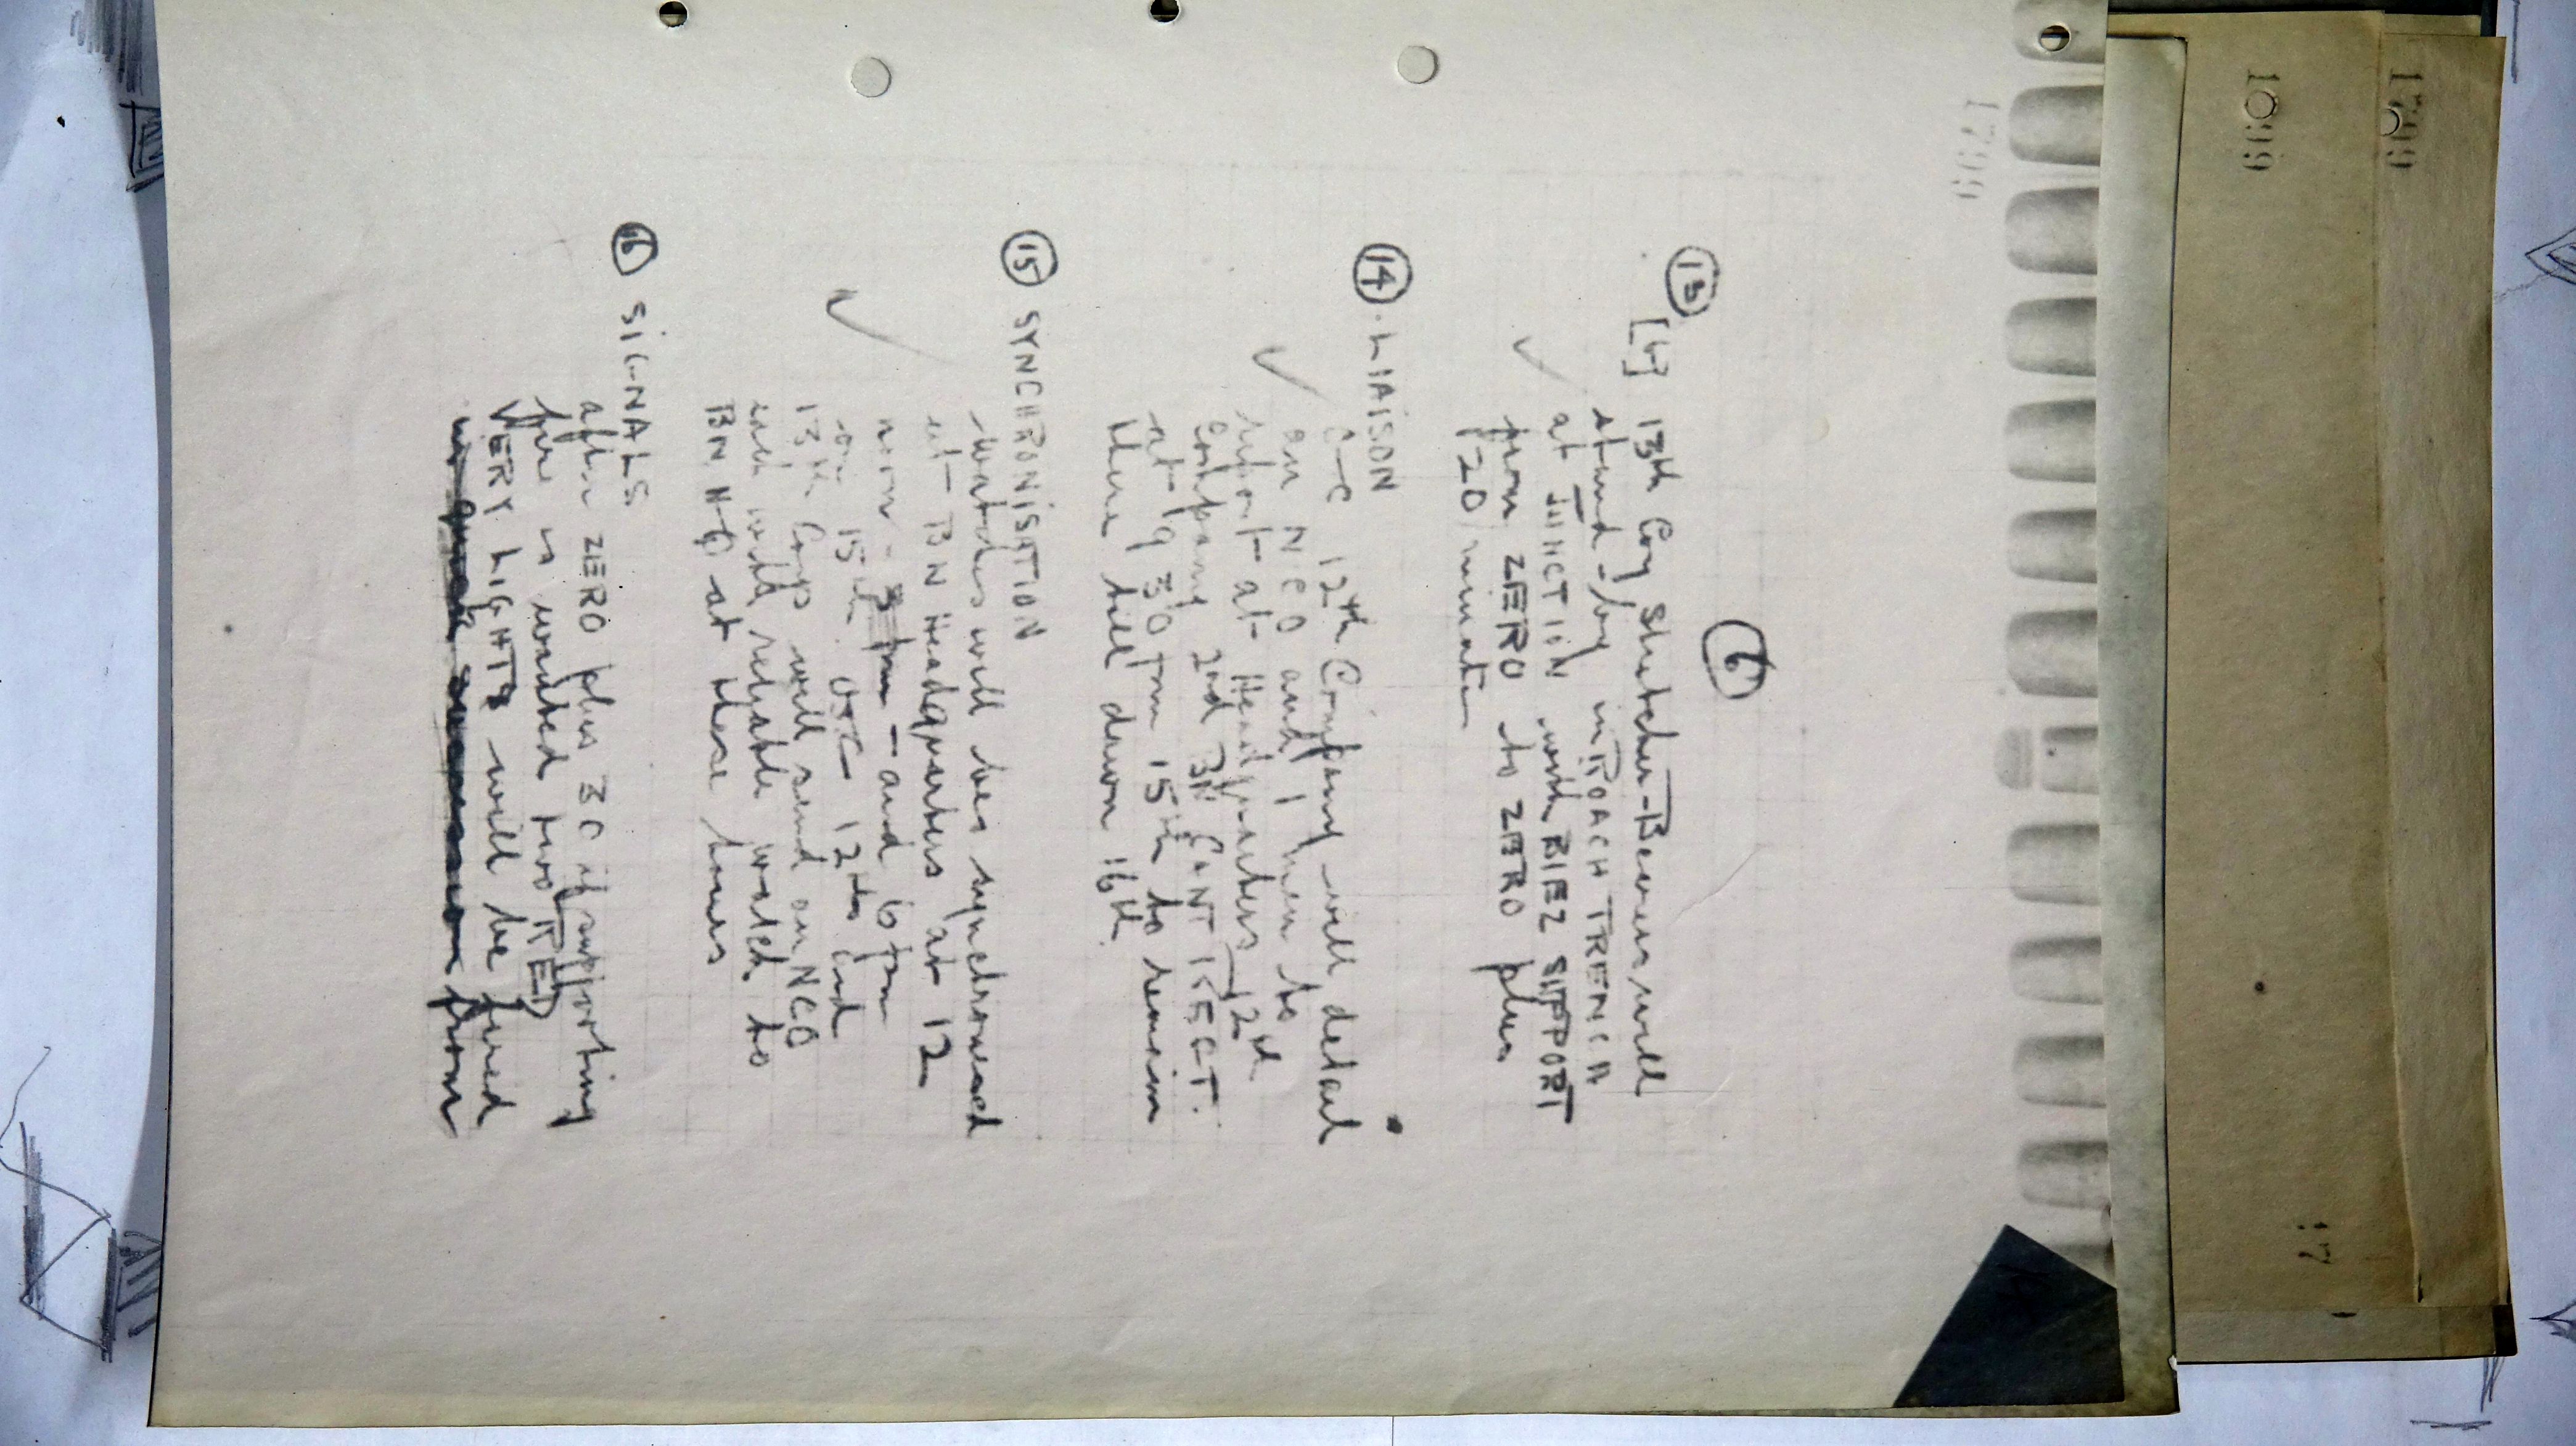 1799
6
13
[b] 13th Coy Stretcher-Bearers will
stand-by in ROACH TRENCH
at JUNCTION with BIEZ SUPPORT
from ZERO to ZERO plus
120 minutes
14. LIAISON
O-C 12th Company will detail
an NCO and 1 men to
report at Headquarters 12th
Company 2nd BN CANT REGT.
at 9 30 pm 15th to remain
there till dawn 16th.
15 SYNCHRONISATION
watches will be synchronised
at BN Headquarters at 12
noon - 3 pm - and 6 pm
on 15th. OsC 12th and
13th Coys will send an NCO
each with reliable watch to
BN HQ at these hours
16 SIGNALS
after ZERO plus 30 if supporting
fire is wanted two RED
VERY LIGHTS will be fired
in quick succession from
1799
1799
17